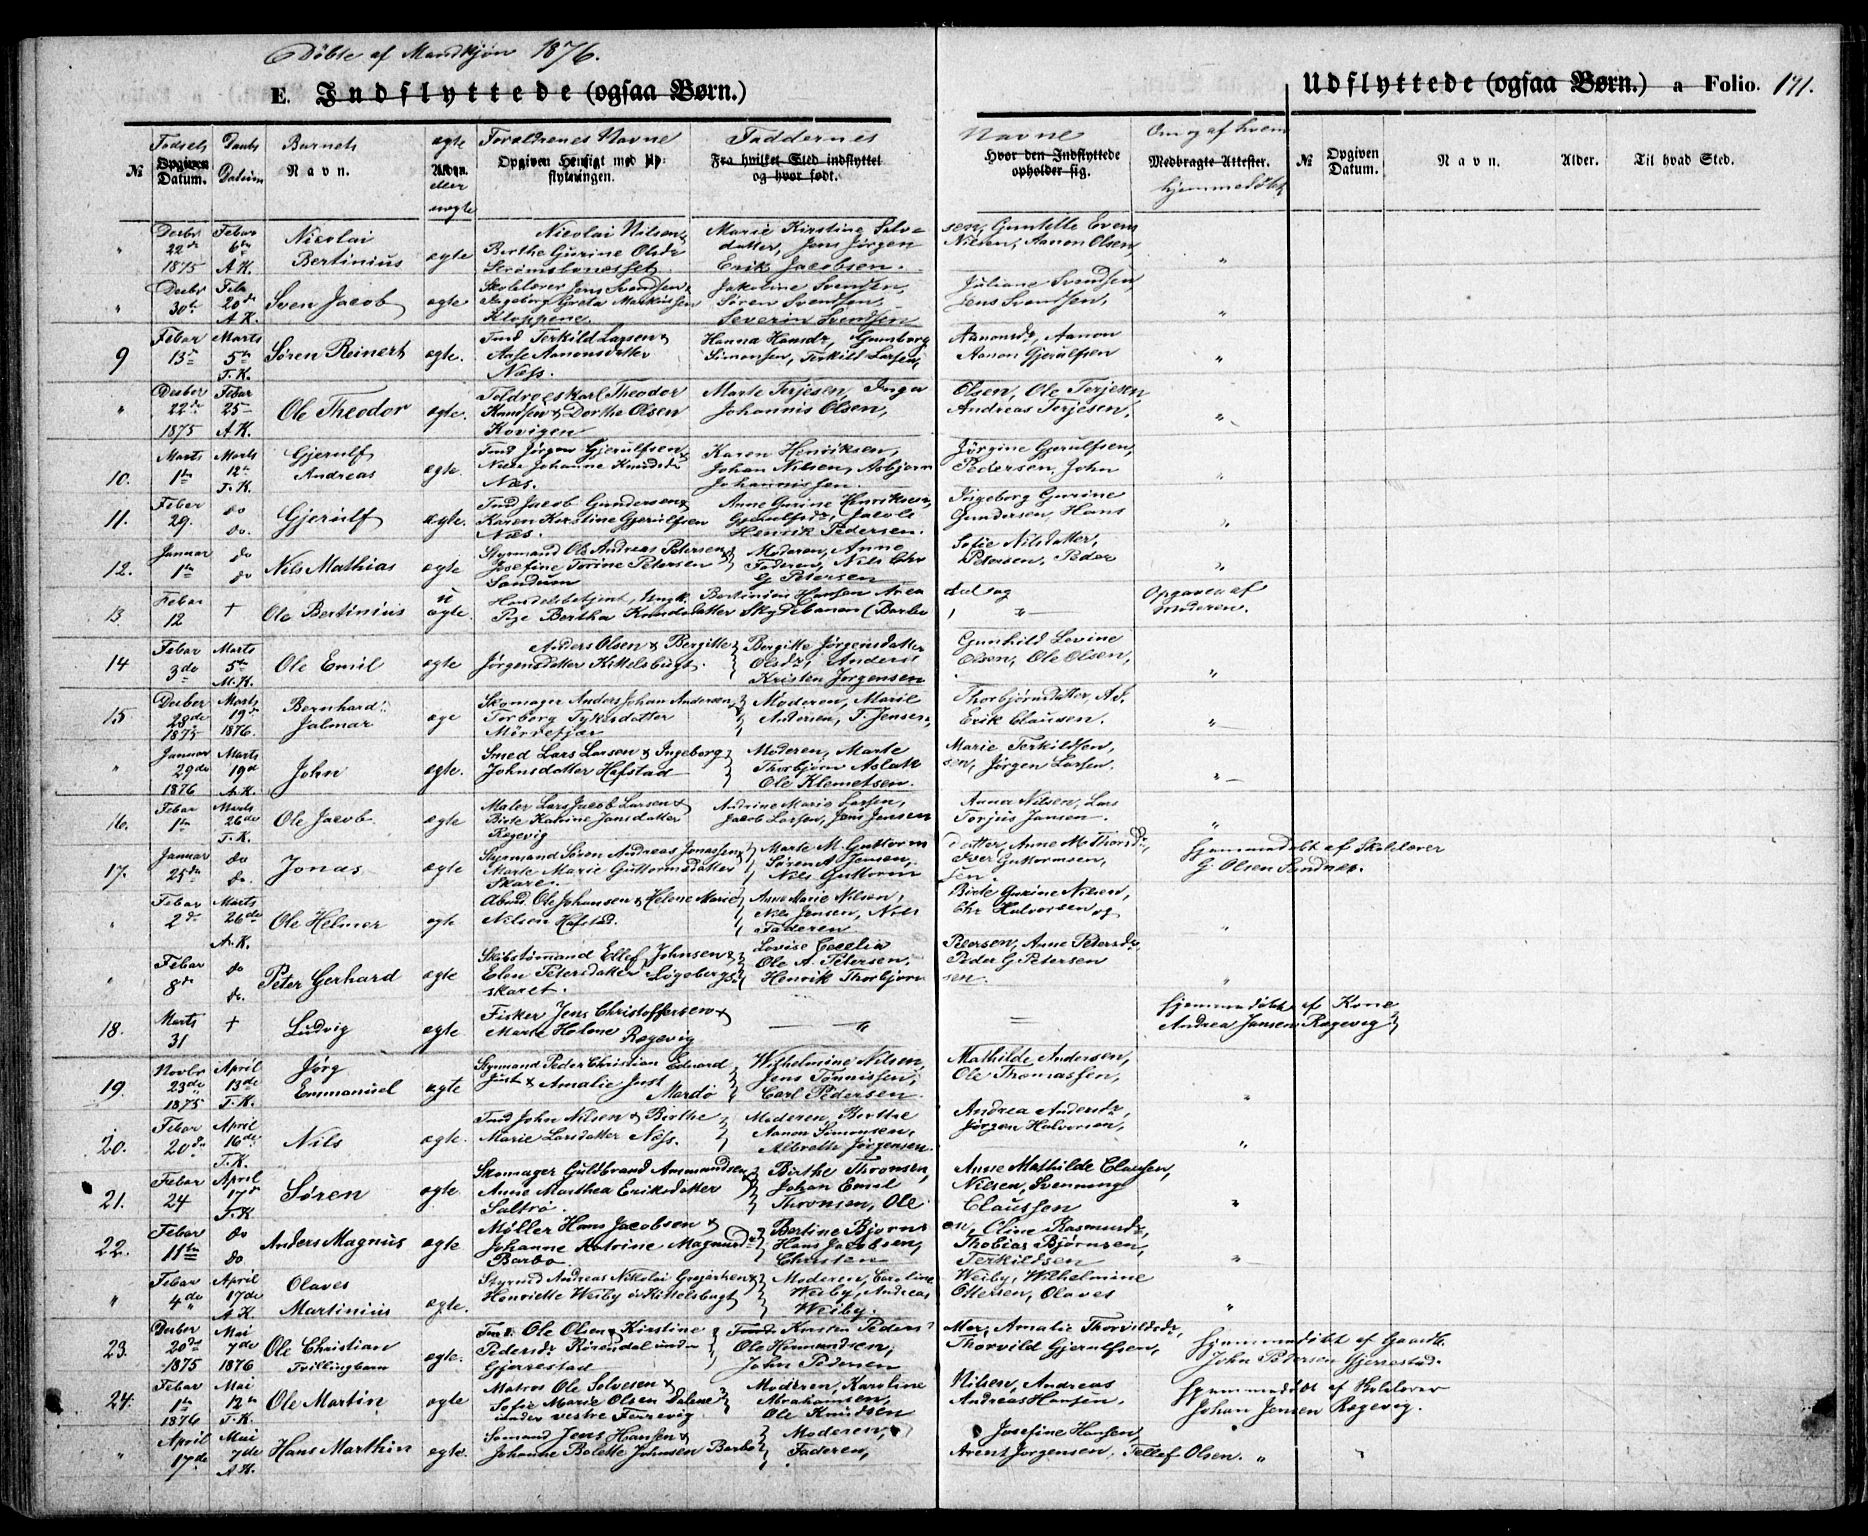 Døbte af Mandkjøn 1876.
E. Indflyttede (ogsaa Børn.)
Udflyttede (ogsaa Børn.) a Folio. 171.
№ Fødsels Opgiven Datum. Daabs Datum Barnets Navn. ægte Alder. eller uægte Forældrenes Navne Opgiven Hensigt med Op: flytningen. Faddernes Fra hvilket Sted indflyttet og hvor født. Navne Hvor den Indflyttede opholder sig. Om og af hvem Medbragte Attester. hjemmedøbt № Opgiven Datum. Navn. Alder. Til hvad Sted.
" Decbr 22de 1875 Febar 6te A.K. Nicolai Bertinius ægte Nicolai Nilsen & Berthe Gurine Olsdr Strømsbonæsset. Marie Kirstine Salve- datter, Jens Jørgen Erik Jacobsen. sen, Guntette Evens Nilsen, Aanon Olsen, "
" Decbr 30te Feb 20de A.K. Sven Jacob ægte Skolelærer Jens Svendsen & Ingeborg Greta Markussen Kloppene. Jakobine Svendsen, Søren Svendsen, Severin Svendsen Juliane Svendsen, Jens Svendsen, "
9 Febar 13de Marts 5te T.K. Søren Reinert ægte. Inds Terkild Larsen & Aase Aanonsdatter Næss. Hanna Hansdr, Gunborg Simonsen, Terkild Larsen, Aanonsdr, Aanon Aanon Gjerulfsen "
" Decbr 22de 1875 Febar 25 A.K. Ole Theodor ægte. Toldroeskarl Theodor Knudsen & Dorthe Olsen Kovigen Marte Terjesen, Inga Johannis Olsen, Olsen, Ole Terjesen, Andreas Terjesen, "
10. Marts 1te Marts 12te T.K. Gjerulf Andreas ægte. Inds Jørgen Gjerulfsen & Niels Johanne Knudsdr Næs. Karen Henriksen, Johan Nilsen, Asbjørn Johannissen. Jørgine Gjerulfsen, Pedersen, John "
11. Febar 29. do do. Gjerulf ægte. Inds Jacob Gundersen & Karen Kirstine Gjerulfsen Næs. Anne Gurine Henriksen, Gjerulfsdr, Jacob Henrik Pedersen. Ingeborg Gurine Gundersen, Hans "
12. Januar 1te do do Nils Mathias ægte Styrmand Ole Andreas Petersen & Josefine Torine Petersen Sandum Moderen, Anne Faderen, Nils Chr G Petersen Sofie Nilsdatter, Petersen, Peder "
13. Febar 12 † Ole Bertinius uægte. Handelsbetjent, Ungk. Bertinius Hansen Aren dal og Pige Bertha Knudsdatter Skydebanen (Barbo) " Opgaven af Moderen.
14 Febar 3de Marts 5te M.K. Ole Emil ægte Anders Olsen & Bergitte Jørgensdatter Kittelsbugt. Bergitte Jørgensdatter Olsdr, Anders Kristen Jørgensen Gunhild Lovine Olsen, Ole Olsen, "
15 Decber 28de 1875 Marts 19de 1876. Bernhard Jalmar ægte Skomager Anders Johan Andersen, Torborg Tykesdatter Mørrefjær Moderen, Marie Andersen, T. Jensen, Thorbjørnsdatter, Ad. Erik Clausen. "
" Januar 29de 1876 Marts 19de A.K. John ægte. Smed Lars Larsen & Ingeborg Johnsdatter Hofstad Moderen, Marte Thorbjørn Aslak Ole Klemetsen. Marie Terkildsen, sen, Jørgen Larsen. "
16. Febar 1te Marts 26de T.K. Ole Jacob ægte Maler Lars Jacob Larsen & Birte Katrine Jansdatter Rægevig Andrine Marie Larsen, Jacob Larsen, Jens Jensen Anna Nilsen, Lars Torjus Jansen. "
17. Januar 25de do do. Jonas ægte Styrmand Søren Andreas Jonassen & Marte Marie Guttormsdatter Skare. Marte M. Guttorm Søren A. Jensen, Nils Guttorm datter, Anne M. Thorsdr, Iver Guttormsen, sen. Hjemmedøbt af Skolelærer G. Olsen Sandnes.
" Febar 2de Marts 26de A.K. Ole Helmer ægte Arbmd. Ole Johansen & Helene Marie Nilsen Hofstad. Anne Marie Nilsen, Nils Jensen, Nils Faderen Birte Gurine Nilsen, Chr Halvorsen og "
" Febar 8de do do. Peter Gerhard ægte Skibstømmand Ellef Johnsen & Elen Petersdatter Løgebergs- skaret. Lovise Cecelia Ole A. Petersen, Henrik Thorbjørn Petersen, Anne Petersdr, Peder G Petersen sen. "
18. Marts 31 † Ludvig ægte. Fisker Jens Christoffersen & Marte Helene Rægevig " = hjemmedøbt af Kone Andrea Jansen Rægevig
19. Novbr 23de 1875 April 13de T.K. Jørg Emmanuel ægte Styrmand Peder Christian Edvard Just & Amalie Just Mardø Wilhelmine Nilsen, Jens Tønnissen, Carl Pedersen. Mathilde Andersen, Ole Thomassen, "
20. Febar 20de April 16de T.K. Nils ægte. Inds John Nilsen & Birthe Marie Larsdatter Næss. Moderen, Berthe Aanon Simonsen, Albreth Jørgensen. Andrea Andersdr, Jørgen Halvorsen, "
21. Febar 24 April 17de T.K. Søren ægte. Skomager Guldbrand Ammundsen & Anne Marthea Eriksdatter Saltrø Birthe Thronsen, Johan Emil Thronsen, Ole Anne Mathilde Claussen, Nilsen, Svenning Claussen "
22. Febar 11te do do Anders Magnus ægte Møller Hans Jacobsen & Johanne Katrine Magnusdr Barbo Bertine Bjørns Hans Jacobsen, Christen en, Oline Rasmusdr, Thobias Bjørnsen, Terkildsen "
" Febar 4de April 17de A.K. Olaves Martinius ægte. Styrmd Andreas Nikolai Grejersen & Henriette Weiby Kittelsbugt Moderen, Caroline Weiby, Andreas Weiby. Weiby, Wilhelmine Ottersen, Olaves "
23. Decber 20de 1875 Mai 7de 1876 Ole Christian Tvillingbarn ægte. Inds. Ole Olsen & Kirstine Pedersdr Rosendal under Gjerrestad Kirsten Peders Ole Hormundsen, John Pedersen Mor, Amalie Thorvildsdr, Thorvild Gjerulfsen, hjemmedøbt af Gaardb. John Petersen Gjerrestad.
24. Febar 1te 1876 Mai 12te T.K. Ole Martin ægte Matros Ole Solvesen & Sofie Marie Olsen Dalene under vestre Færevig Moderen, Karoline Abrahamsen, Ole Knudsen Nilsen, Andreas Andreas Hansen. Hjemmedøbt af Skolelærer Johan Jensen Rægevig.
" April 17de Mai 7de A.K. Hans Marthin ægte. Sømand Jens Hansen & Johanne Bolette Johnsen Barbo Moderen, Faderen, Josefine Hansen Arent Jørgensen, Tellef Olsen. "